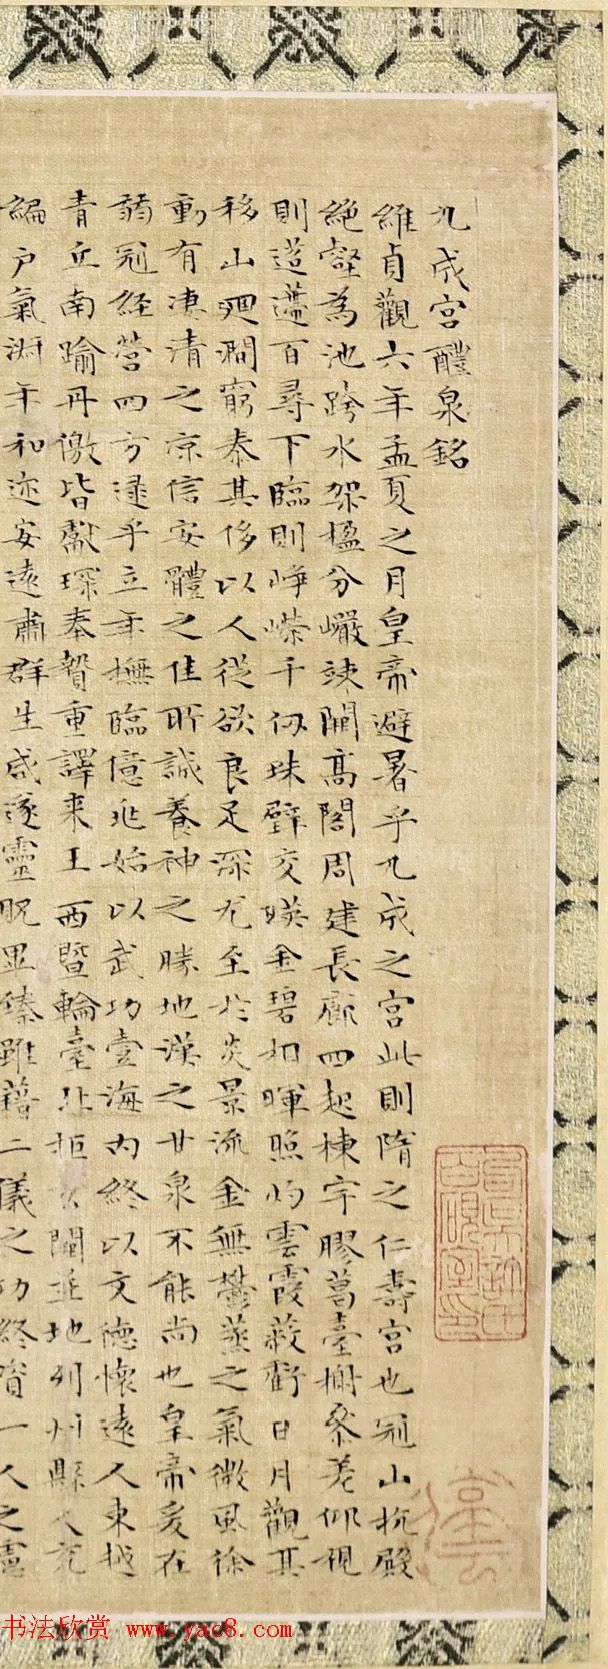 九成宮醴泉銘
維貞觀六年孟夏之月皇帝避暑乎九成之宮此則隋之仁壽宮也冠山抗殿
絕壑為池跨水架楹分巖竦闕高閣周建長廊四起棟宇膠葛臺榭參差仰視
則迢遰百尋下臨則崢嶸千仞珠壁交暎金碧相暉照灼雲霞蔽虧日月觀其
移山迴澗窮泰其侈以人從欲良足深尤至於炎景流金無鬱蒸之氣微風徐
動有凄清之涼信安體之佳所誠養神之勝地漢之甘泉不能尚也皇帝爰在
弱冠經營四方逮乎立年撫臨億兆始以武功壹海內終以文德懷遠人東越
青丘南踰丹儌皆獻琛奉贄重譯来王西暨輪臺北拒玄闕並地列州縣人充
編户氣淑年和迩安遠肅群生咸遂靈貺畢臻雖藉二儀之功終資一人之慮
书法欣赏 www.yac8.com